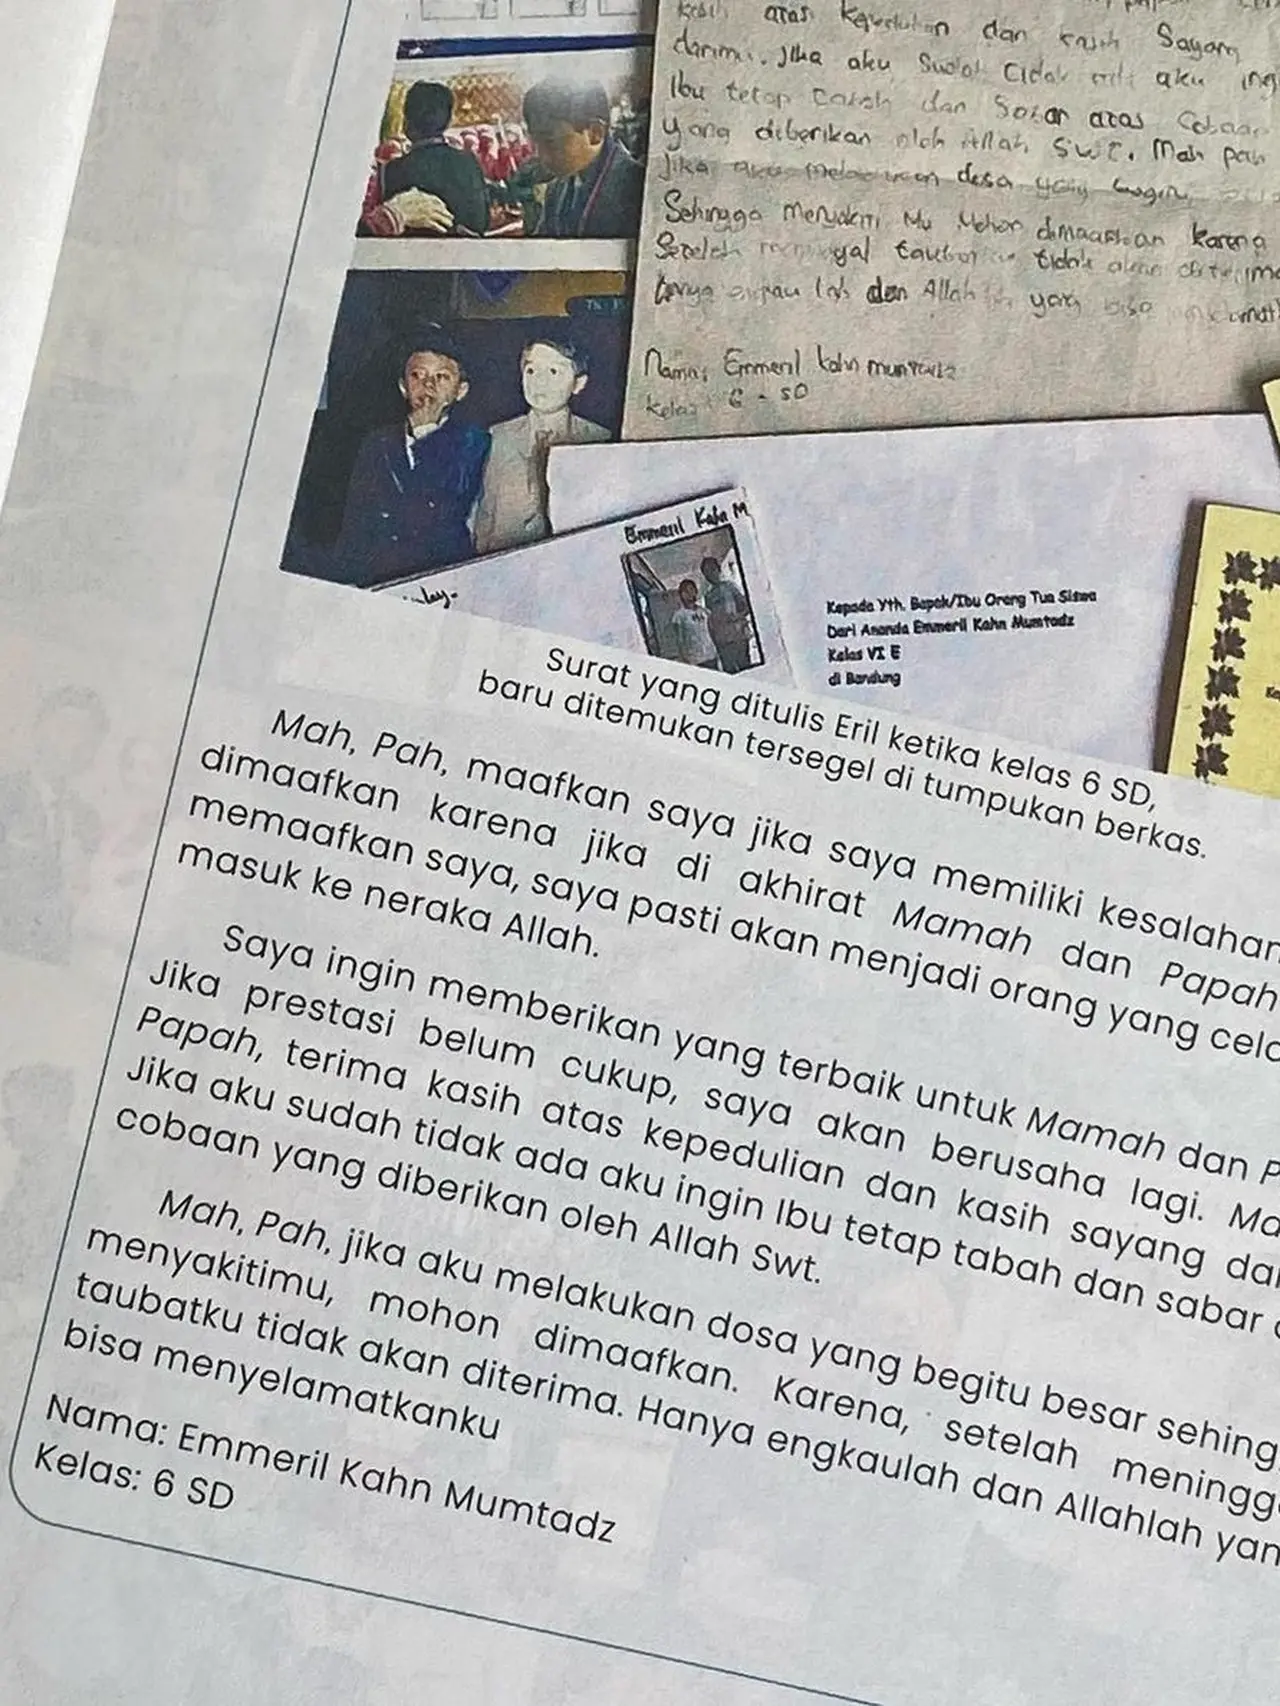 kasih atas kepedulian dan kasih Sayang
darimu. Jika aku Sudah tidak aku ing
Ibu tetap tabah dan Sabar atas Cobaan
yang diberikan oleh Allah SWT. Mah pah
Jika aku melakukan dosa yang
Sehingga menyakiti Mu Mohon dimaafkan karena
Setelah tidak akan
dan Allah yang bisa
Nama: Emmeril kahn mumtadz
kelas : 6 - SD
Emmeril Kahn M
Kepada Yth. Bapak/Ibu Orang Tua Siswa
Dari Ananda Emmeril Kahn Mumtadz
Kelas VI E
di Bandung
Surat yang ditulis Eril ketika kelas 6 SD,
baru ditemukan tersegel di tumpukan berkas.
Mah, Pah, maafkan saya jika saya memiliki kesalahan
dimaafkan karena jika di akhirat Mamah dan Papah
memaafkan saya, saya pasti akan menjadi orang yang cela
masuk ke neraka Allah.
Saya ingin memberikan yang terbaik untuk Mamah dan P
Jika prestasi belum cukup, saya akan berusaha lagi. Ma
Papah, terima kasih atas kepedulian dan kasih sayang da
Jika aku sudah tidak ada aku ingin Ibu tetap tabah dan sabar
cobaan yang diberikan oleh Allah Swt.
Mah, Pah, jika aku melakukan dosa yang begitu besar sehing
menyakitimu, mohon dimaafkan. Karena, setelah meningg
taubatku tidak akan diterima. Hanya engkaulah dan Allahlah yan
bisa menyelamatkanku
Nama: Emmeril Kahn Mumtadz
Kelas: 6 SD